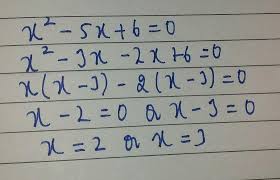 x² - 5x + 6 = 0
x² - 3x - 2x + 6 = 0
x(x - 3) - 2(x - 3) = 0
x - 2 = 0 or x - 3 = 0
x = 2 or x = 3